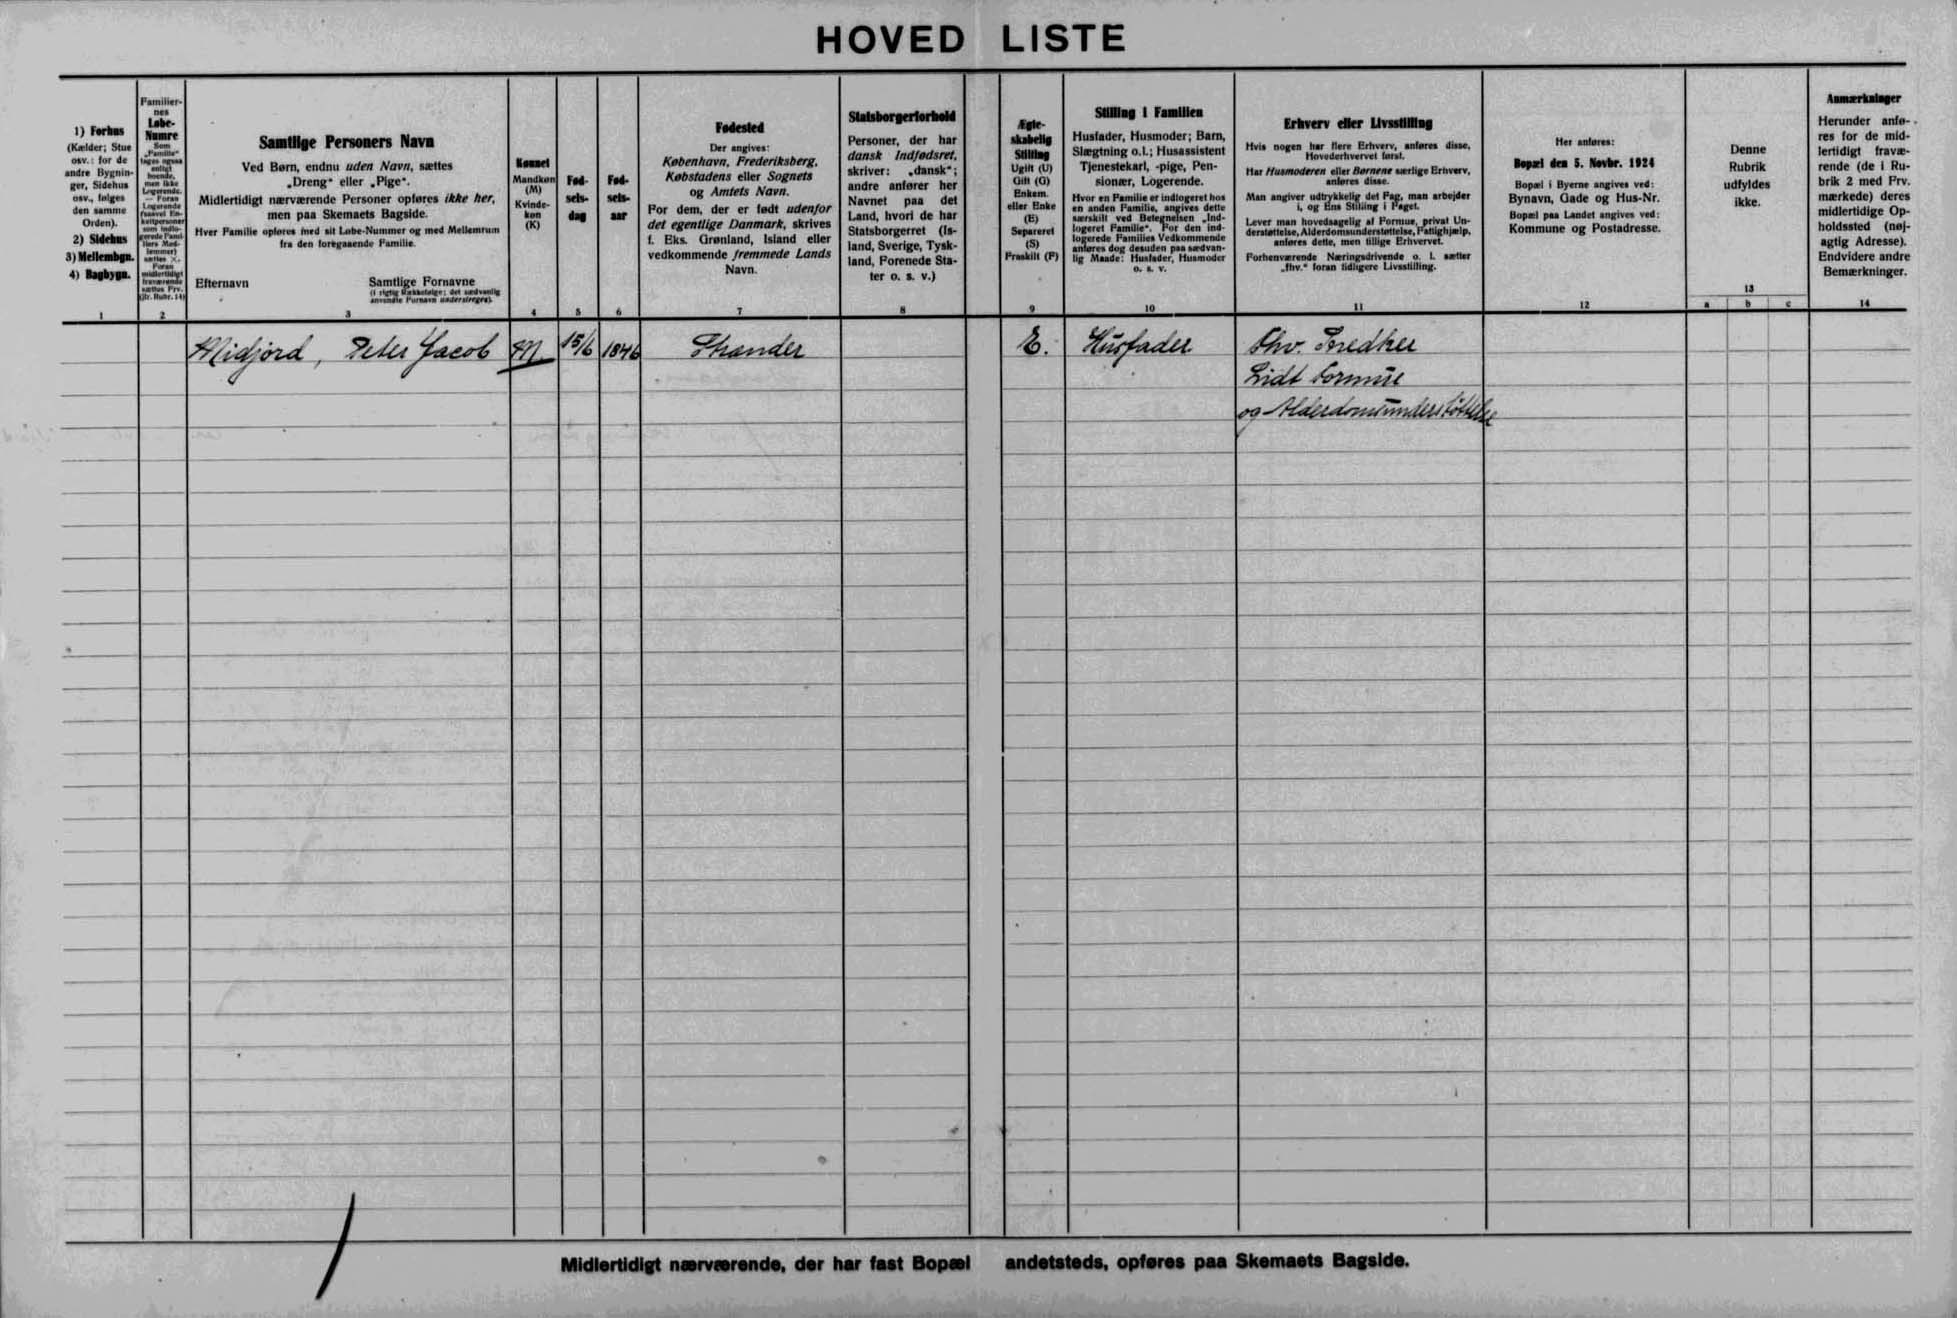 HOVED LISTE
1) Forhus
(Kælder; Stue
osv.: for de
andre Bygnin-
ger, Sidehus
osv., følges
den samme
Orden).
2) Sidehus
3) Mellembgn.
4) Bagbygn.
1
Familier-
nes
Løbe-
Numre
Som
„Familie“
tages ogsaa
enligt
boende,
men ikke
Logerende.
— Foran
Logerende
(saavel En-
keltpersoner
som indlo-
gerede Fami-
liers Med-
lemmer)
sættes ×.
Foran
midlertidigt
fraværende
sættes Frv.
(jfr. Rubr. 14)
2
Samtlige Personers Navn
Ved Børn, endnu uden Navn, sættes
„Dreng“ eller „Pige“.
Midlertidigt nærværende Personer opføres ikke her,
men paa Skemaets Bagside.
Hver Familie opføres med sit Løbe-Nummer og med Mellemrum
fra den foregaaende Familie.
Efternavn
Samtlige Fornavne
(i rigtig Rækkefølge; det sædvanlig
anvendte Fornavn understreges).
3
Kønnet
Mandkøn
(M)
Kvinde-
køn
(K)
4
Fød-
sels-
dag
5
Fød-
sels-
aar
6
Fødested
Der angives:
København, Frederiksberg,
Købstadens eller Sognets
og Amtets Navn.
For dem, der er født udenfor
det egentlige Danmark, skrives
f. Eks. Grønland, Island eller
vedkommende fremmede Lands
Navn.
7
Statsborgerforhold
Personer, der har
dansk Indfødsret,
skriver: „dansk“;
andre anfører her
Navnet paa det
Land, hvori de har
Statsborgerret (Is-
land, Sverige, Tysk-
land, Forenede Sta-
ter o. s. v.)
8
Ægte-
skabelig
Stilling
Ugift (U)
Gift (G)
Enkem.
eller Enke
(E)
Separeret
(S)
Fraskilt (F)
9
Stilling i Familien
Husfader, Husmoder; Barn,
Slægtning o.l.; Husassistent
Tjenestekarl, -pige, Pen-
sionær, Logerende.
Hvor en Familie er indlogeret hos
en anden Familie, angives dette
særskilt ved Betegnelsen „Ind-
logeret Familie“. For den ind-
logerede Families Vedkommende
anføres dog desuden paa sædvan-
lig Maade: Husfader, Husmoder
o. s. v.
10
Erhverv eller Livsstilling
Hvis nogen har flere Erhverv, anføres disse,
Hovederhvervet først.
Har Husmoderen eller Børnene særlige Erhverv,
anføres disse.
Man angiver udtrykkelig det Fag, man arbejder
i, og Ens Stilling i Faget.
Lever man hovedsagelig af Formue, privat Un-
derstøttelse, Alderdomsunderstøttelse, Fattighjælp,
anføres dette, men tillige Erhvervet.
Forhenværende Næringsdrivende o. l. sætter
„fhv.“ foran tidligere Livsstilling.
11
Her anføres:
Bopæl den 5. Novbr. 1924
Bopæl i Byerne angives ved:
Bynavn, Gade og Hus-Nr.
Bopæl paa Landet angives ved:
Kommune og Postadresse.
12
Denne
Rubrik
udfyldes
ikke.
13
a b c
Anmærkninger
Herunder anfø-
res for de mid-
lertidigt fravæ-
rende (de i Ru-
brik 2 med Frv.
mærkede) deres
midlertidige Op-
holdssted (nøj-
agtig Adresse).
Endvidere andre
Bemærkninger.
14
Midjord, Peter Jacob M 15/6 1846 Strander E. Husfader Fhv. Snedker
Lidt Formue
og Alderdomsunderstøttelse
Midlertidigt nærværende, der har fast Bopæl andetsteds, opføres paa Skemaets Bagside.